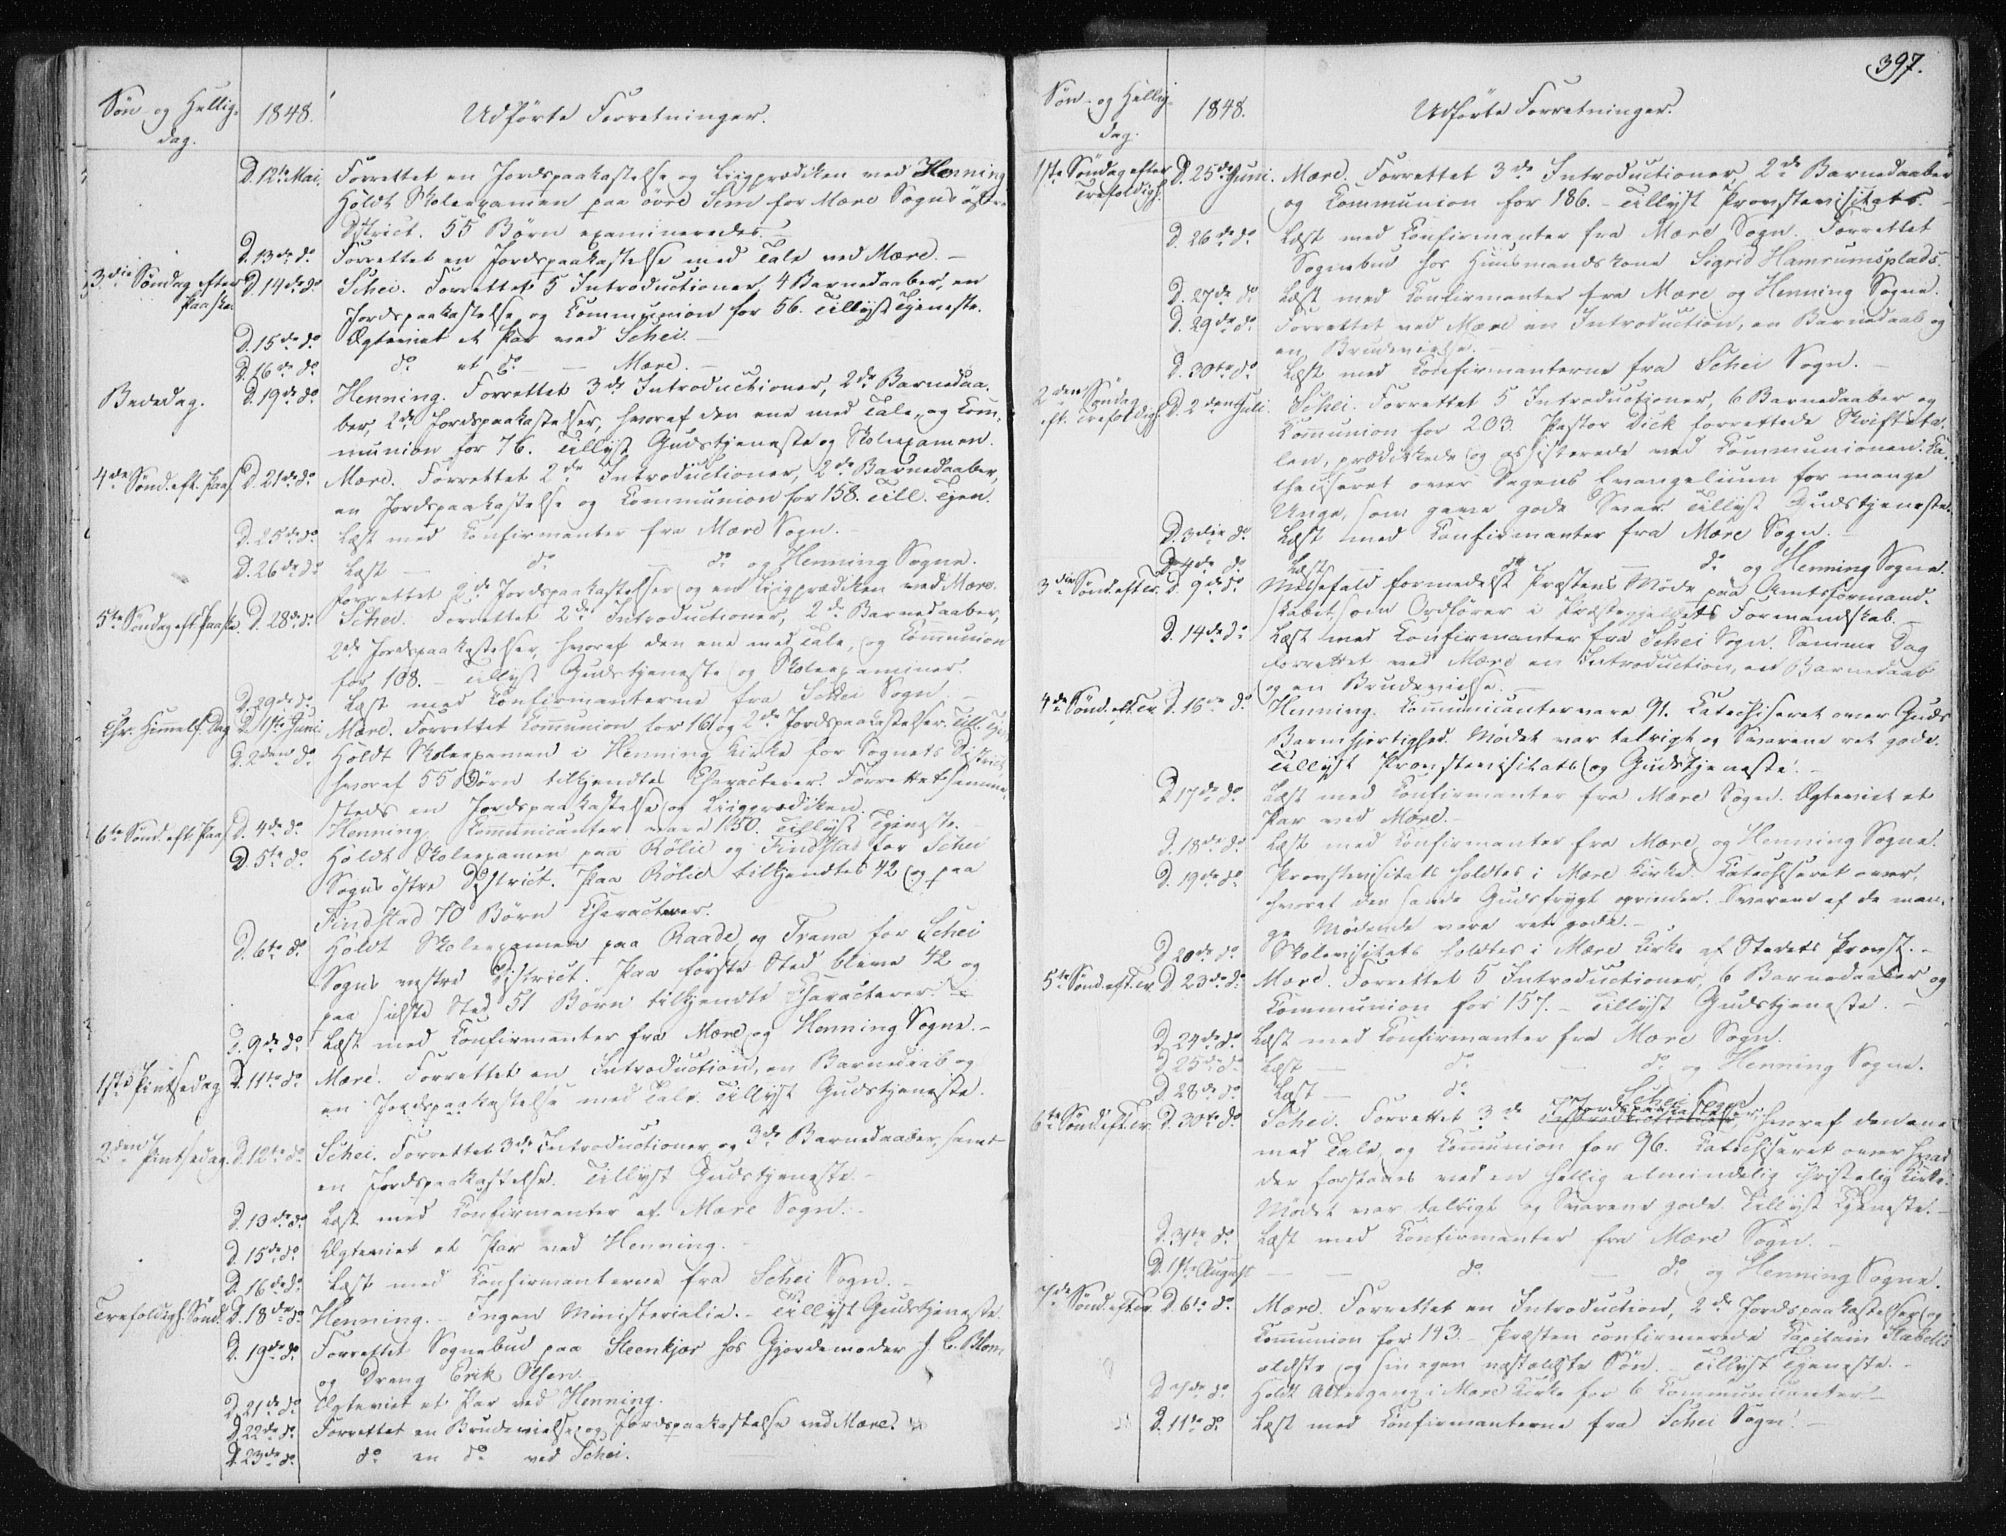 Søn- og Hellig-
dag.
1848.
Udførte Forretninger.
D. 12te Mai. Forrettet en Jordspaakastelse og Liigprædiken ved Henning
Holdt Skoleexamen paa övre Sem for Mære Sogns östre
District. 55 Børn examineredes. –
D. 13de do Forrettet en Jordspaakastelse med Tale ved Mære. –
3die Søndag efter D. 14de do Schei. Forrettet 5 Introductioner, 4 Barnedaaber, en
Paaske. Jordspaakastelse og Communion for 56. Tillyst Tjeneste.
D. 15de do Ægteviet et Par ved Schei. –
D. 16de do do et do – Mære. –
Bededag. D. 19de do Henning. Forrettet 3de Introductioner, 2de Barnedaa-
ber, 2de Jordspaakastelser, hvoraf den ene med Tale, og Com-
munion for 76. Tillyst Gudstjeneste og Skoleexamen.
4de Sønd. eft. Paas. D. 21de do Mære. Forrettet 2de Introductioner, 2de Barnedaaber,
en Jordspaakastelse og Communion for 158. Till. Tjen.
D. 25de do Læst med Confirmanter fra Mære Sogn. –
D. 26de do Læst – do – do og Henning Sogne.
Forrettet 2de Jordspaakastelser og en Liigprædiken ved Mære.
5te Søndag eft. Paaske. D. 28de do Schei. Forrettet 2de Introductioner, 2de Barnedaaber,
2de Jordspaakastelser, hvoraf den ene med Tale, og Communion
for 108. – Tillyst Gudstjeneste og Skoleexaminer.
D. 29de do Læst med Confirmanterne fra Schei Sogn. –
Chr. Himmelf. Dag D. 1ste Juni. Mære. Forrettet Communion for 161 og 2de Jordspaakastelser. Till. Tje.
D. 2den do Holdt Skoleexamen i Henning Kirke for Sognets District,
hvoraf 55 Børn tilkjendtes Characterer. Forrettet samme-
steds en Jordspaakastelse og Liigprædiken.
6te Sønd. eft. Paas. D. 4de do Henning. Communicanter vare 150. Tillyst Tjeneste.
D. 5te do Holdt Skoleexamen paa Rølie og Findstad for Schei
Sogns östre District. Paa Rølie tilkjendtes 42 og paa
Findstad 70 Børn Characterer.
D. 6te do Holdt Skoleexamen paa Raade og Trana for Schei
Sogns vestre District. Paa første Sted bleve 42 og
paa sidste Sted 51 Børn tilkjendte Characterer. –
D. 9de do Læst med Confirmanter fra Mære og Henning Sogne. –
1ste Pintsedag D. 11te do Mære. Forrettet en Introduction, en Barnedaab og
en Jordspaakastelse med Tale. Tillyst Gudstjeneste.
2den Pintsedag. D. 12te do Schei. Forrettet 3de Introductioner og 3de Barnedaaber, samt
en Jordspaakastelse. Tillyst Gudstjeneste. –
D. 13de do Læst med Confirmanter af Mære Sogn. –
D. 15de do Ægteviet et Par ved Henning. –
D. 16de do Læst med Confirmanterne fra Schei Sogn. –
Trefoldigh. Sønd. D. 18de do Henning. – Ingen Ministerialia. – Tillyst Gudstjeneste
D. 19de do Forrettet Sognebud paa Steenkjær hos Gjordemoder J. C. Blom
og Dreng Erik Olsen.
D. 21de do Ægteviet et Par ved Henning.
D. 22de do Forrettet en Brudevielse og Jordspaakastelse ved Mære.
D. 23de do do en do ved Schei.
397.
Søn- og Hellig-
dag.
1848.
Udførte Forretninger.
1ste Søndag efter D. 25de Juni. Mære. Forrettet 3de Introductioner, 2de Barnedaaber
Trefoldigh. og Communion for 186. – Tillyst Provstevisitats. –
D. 26de do Læst med Confirmanter fra Mære Sogn. Forrettet
Sognebud hos Huusmandskone Sigrid Hamrumsplads.
D. 27de do Læst med Confirmanter fra Mære og Henning Sogne.
D. 29de do Forrettet ved Mære en Introduction, en Barnedaab og
en Brudevielse. –
D. 30te do Læst med Confirmanterne fra Schei Sogn. –
2den Søndag
eft. Trefoldigh. D. 2den Juli. Schei. Forrettet 5 Introductioner, 6 Barnedaaber og
Communion for 203. Pastor Dick forrettede Skrifteta-
len, prædikede og assisterede ved Communionen. Ca-
thechiseret over Dagens Evangelium for mange
Unge, som gave gode Svar. Tillyst Gudstjeneste.
D. 3die do Læst med Confirmanter fra Mære Sogn. –
D. 4de do Læst – do – do og Henning Sogne.
3die Sønd. eft. Tr. D. 9de do Messefald formedelst Præstens Møde paa Amtsformand-
skabet som Ordfører i Præstegjeldets Formandskab. –
D. 14de do Læst med Confirmanter fra Schei Sogn. Samme Dag
forrettet ved Mære en Introduction, en Barnedaab
og en Brudevielse. –
4de Sønd. eft. Tr. D. 16de do Henning. Communicanter vare 91. Catechiseret over Guds
Barmhjertighed. Mødet var talrigt og Svarene ret gode.
Tillyst Provstevisitats og Gudstjeneste. –
D. 17de do Læst med Confirmanter fra Mære Sogn. Ægteviet et
Par ved Mære. –
D. 18de do Læst med Confirmanter fra Mære og Henning Sogne.
D. 19de do Provstevisitats holdtes i Mære Kirke. Catechiseret over,
hvoraf den sande Gudsfrygt oprinder. Svarene af de man-
ge Mødende vare ret gode. –
D. 20de do Skolevisitats holdtes i Mære Kirke af Stedets Provst. –
5te Sønd. eft. Tr. D. 23de do Mære. Forrettet 5 Introductioner, 6 Barnedaaber og
Communion for 157. – Tillyst Gudstjeneste. –
D. 24de do Læst med Confirmanter fra Mære Sogn.
D. 25de do Læst – do – do og Henning Sogne.
D. 28de do Læst – do Schei Sogn
6te Sønd. eft. Tr. D. 30te do Schei. Forrettet 3de Introductioner Jordspaakastelser hvoraf den ene
med Tale, og Communion for 96. Catechiseret over hvad
der forstaaes ved en hellig almindelig christelig Kirke.
Mødet var talrigt og Svarene gode. Tillyst Tjeneste. –
D. 31te do Læst med Confirmanter fra Mære Sogn. –
D. 1ste August – – do – do og Henning Sogne.
7de Sønd. eft. Tr. D. 6te do Mære. Forrettet en Introduction, 2de Jordspaakastelser og
Communion for 143. – Præsten confirmerede Kapitain Stabells
ældste og sin egen næstældste Søn. – Tillyst Tjeneste. –
D. 7de do Holdt Altergang i Mære Kirke for 6 Communicanter. –
D. 11te do Læst med Confirmanterne fra Schei Sogn. –